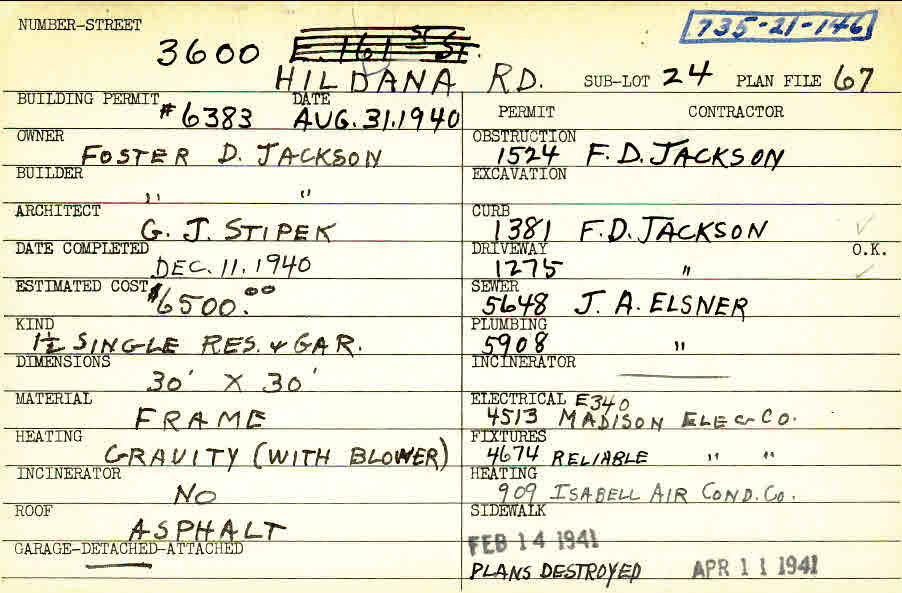 NUMBER-STREET
735-21-146
3600 E. 161 ST ST.
HILDANA RD. SUB-LOT 24 PLAN FILE 67
BUILDING PERMIT #6383 DATE AUG. 31. 1940
OWNER
FOSTER D. JACKSON
BUILDER
" "
ARCHITECT
G. J. STIPEK
DATE COMPLETED
DEC. 11. 1940
ESTIMATED COST
$6500.00
KIND
1½ SINGLE RES. & GAR.
DIMENSIONS
30' X 30'
MATERIAL
FRAME
HEATING
GRAVITY (WITH BLOWER)
INCINERATOR
NO
ROOF
ASPHALT
GARAGE-DETACHED-ATTACHED
PERMIT CONTRACTOR
OBSTRUCTION
1524 F. D. JACKSON
EXCAVATION
CURB
1381 F. D. JACKSON
DRIVEWAY O.K.
1275 "
SEWER
5648 J. A. ELSNER
PLUMBING
5908 "
INCINERATOR
ELECTRICAL E340
4513 MADISON ELEC. CO.
FIXTURES
4674 RELIABLE " "
HEATING
909 ISABELL AIR COND. CO.
SIDEWALK
FEB 14 1941
PLANS DESTROYED APR 11 1941